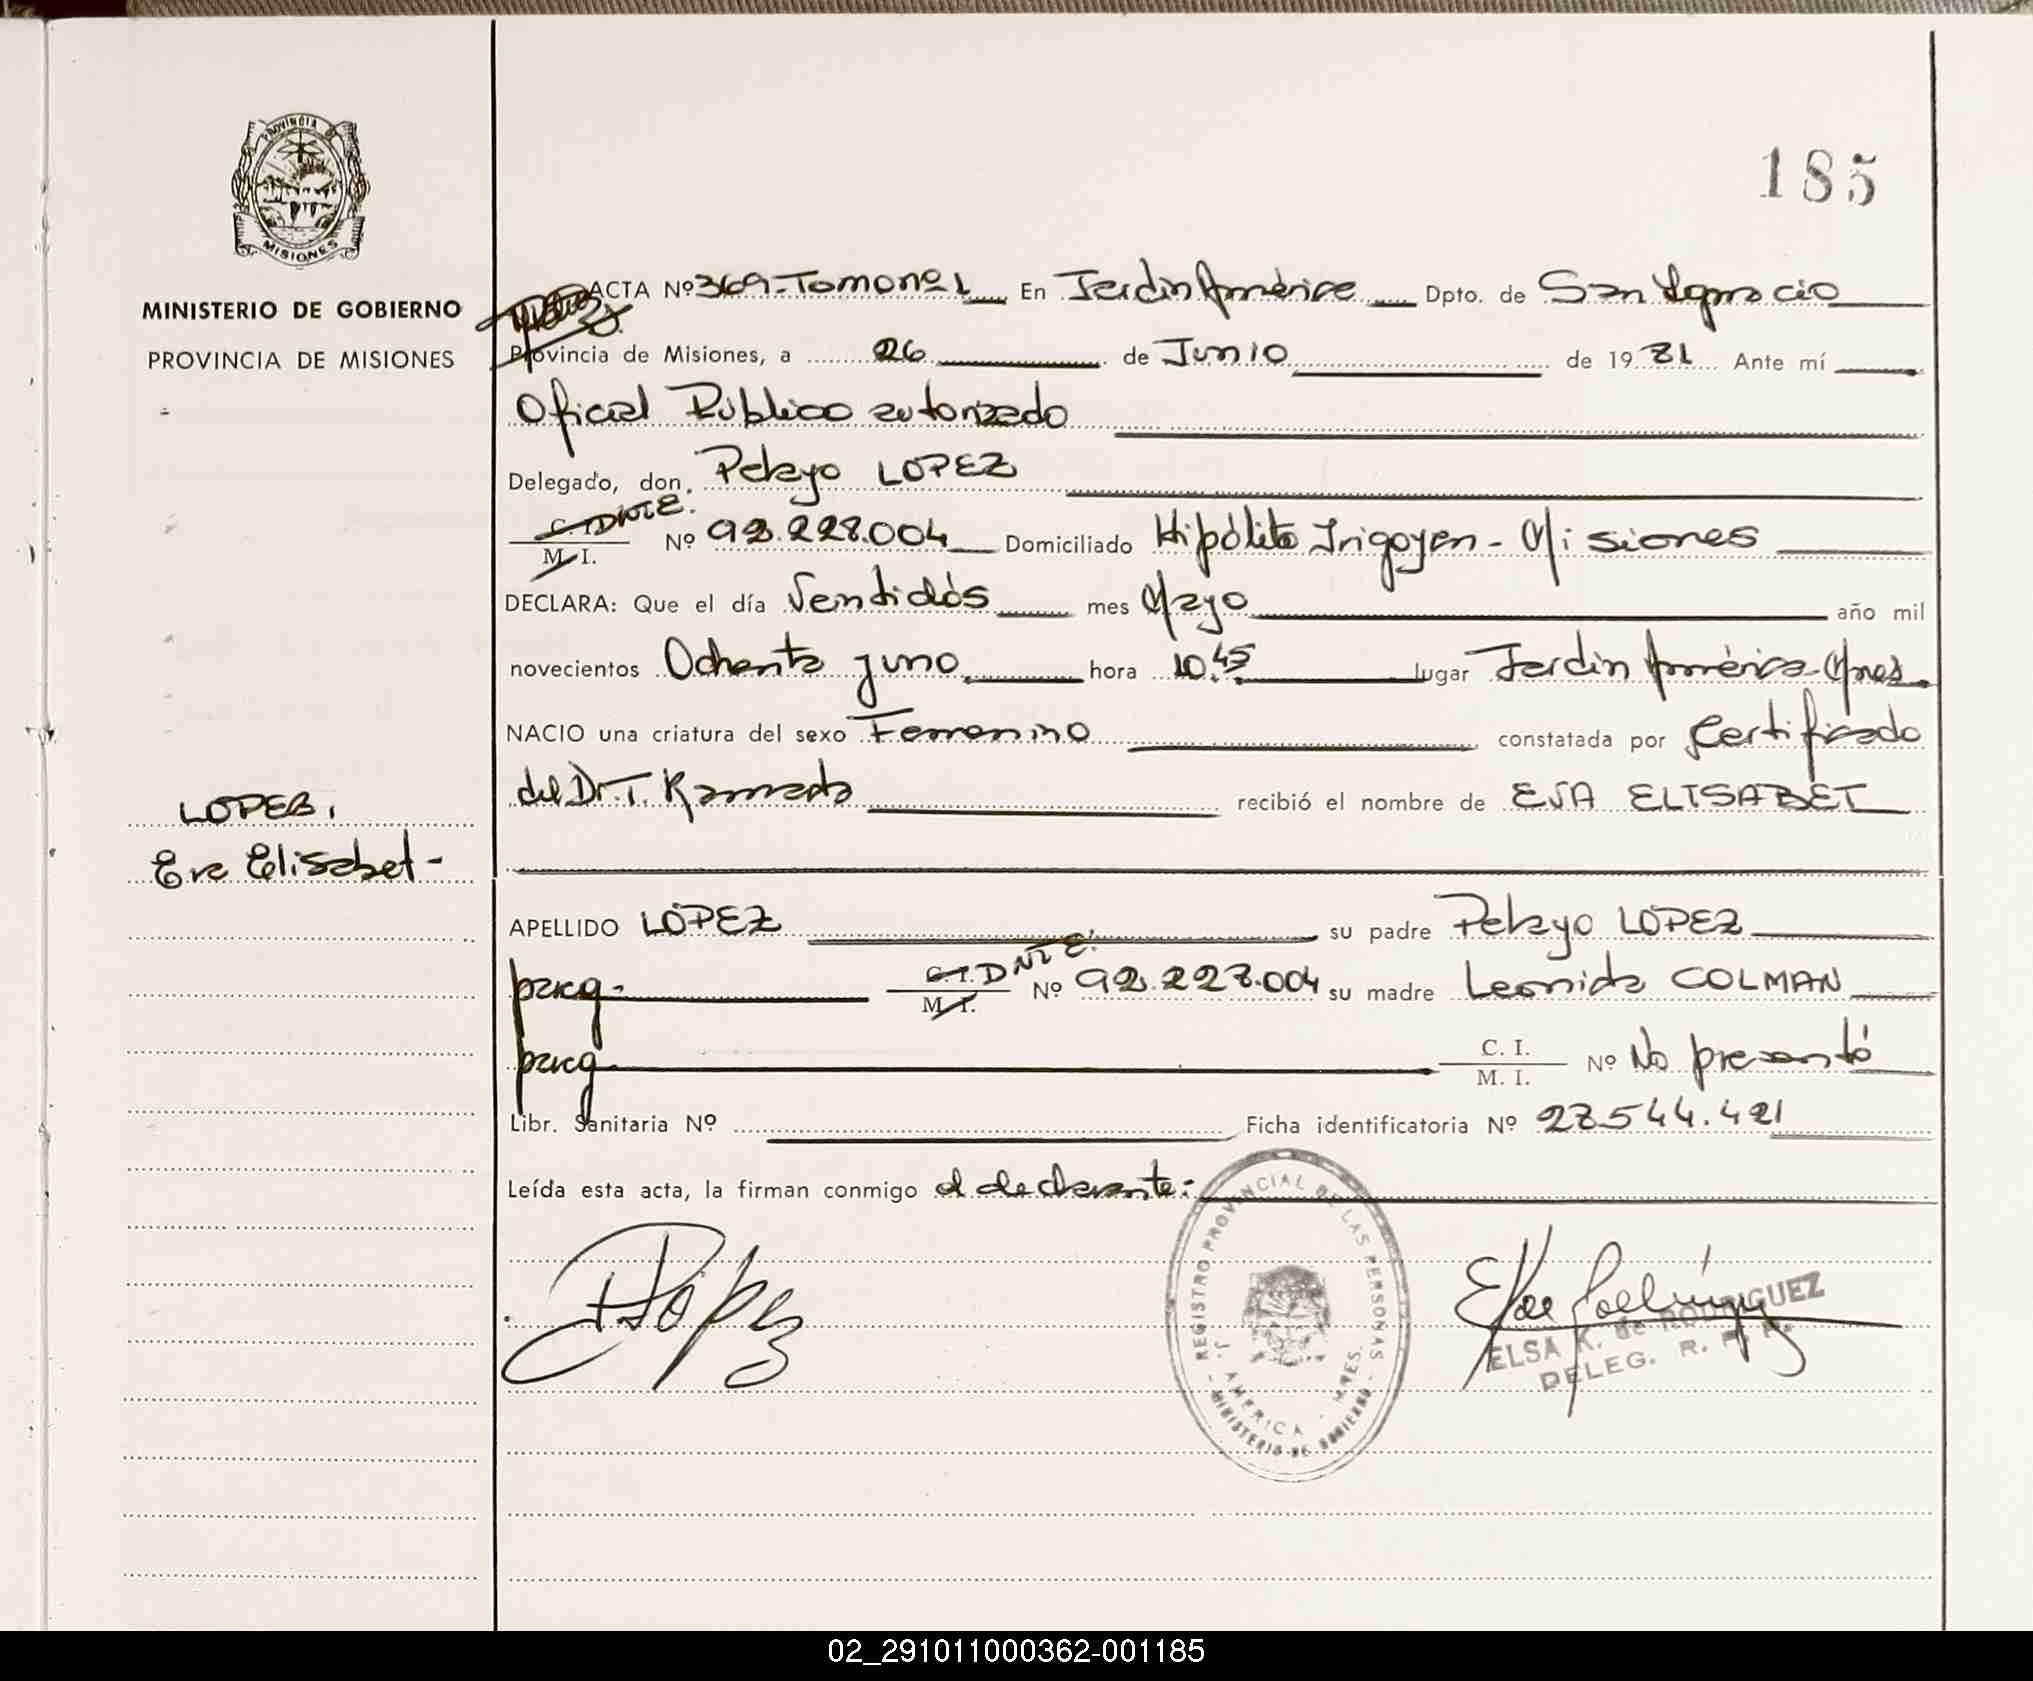 185
PROVINCIA DE
MISIONES
MINISTERIO DE GOBIERNO
PROVINCIA DE MISIONES
LOPEZ,
Eva Elisabet -
ACTA Nº 369-Tomo nº 1 En Jardin América Dpto. de San Ignacio
Provincia de Misiones, a 26 de Junio de 1981 Ante mí
Oficial Público autorizado
Delegado, don, Pelayo LOPEZ
C.I. DNIE.
M. I. Nº 92.228.004 Domiciliado Hipólito Irigoyen - Misiones
DECLARA: Que el día Ventidós mes Mayo año mil
novecientos Ochenta yuno hora 10,45 lugar Jardin América-Mnes.
NACIO una criatura del sexo Femenino constatada por Certificado
del Dr. T. Ramada recibió el nombre de EVA ELISABET
APELLIDO LOPEZ su padre Pelayo LÓPEZ
parag- C.I. DNIE.
M. I. Nº 92.228.004 su madre Leonida COLMAN
parag- C. I.
M. I. Nº No presentó
Libr. Sanitaria Nº Ficha identificatoria Nº 28.544.421
Leída esta acta, la firman conmigo el declarante:
López
REGISTRO PROVINCIAL DE LAS PERSONAS
J. AMERICA - MNES.
- MINISTERIO DE GOBIERNO -
ELSA K. de RODRIGUEZ
DELEG. R. P. P.
02_291011000362-001185